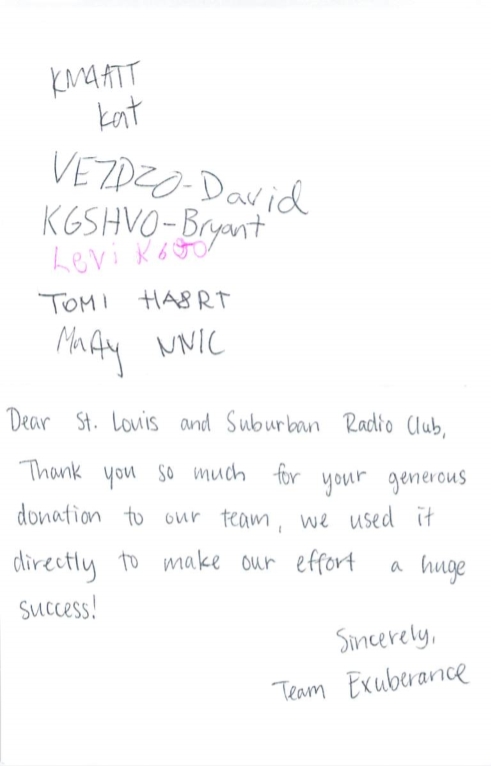 KM4ATT
Kat
VE7DZO-David
KG5HVO-Bryant
Levi K6
TOMI HA8RT
NN1C
Dear St. Louis and Suburban Radio Club,
Thank you so much for your generous
donation to our team, we used it
directly to make our effort a huge
success!
Sincerely,
Team Exuberance